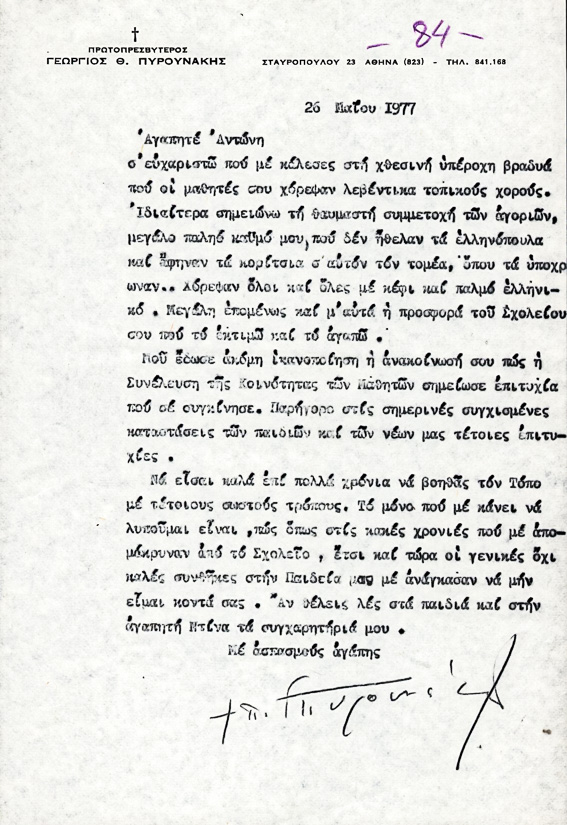 — 84 —
†
ΠΡΩΤΟΠΡΕΣΒΥΤΕΡΟΣ
ΓΕΩΡΓΙΟΣ Θ. ΠΥΡΟΥΝΑΚΗΣ ΣΤΑΥΡΟΠΟΥΛΟΥ 23 ΑΘΗΝΑ (823) - ΤΗΛ. 841.168
26 Μαΐου 1977
Ἀγαπητέ Ἀντώνη
σ'εὐχαριστῶ πού μέ κάλεσες στή χθεσινή ὑπέροχη βραδυά
πού οἱ μαθητές σου χόρεψαν λεβέντικα τοπικούς χορούς.
Ἰδιαίτερα σημειώνω τή θαυμαστή συμμετοχή τῶν ἀγοριῶν,
μεγάλο παληό καϋμό μου, πού δέν ἤθελαν τά ἑλληνόπουλα
καί ἄφηναν τά κορίτσια σ'αὐτόν τόν τομέα, ὅπου τά ὑποχρ
ωναν.. Χόρεψαν ὅλοι καί ὅλες μέ κέφι καί παλμό ἑλληνι-
κό . Μεγάλη ἑπομένως καί μ'αὐτά ἡ προσφορά τοῦ Σχολείου
σου πού τό ἐκτιμῶ καί τό ἀγαπῶ .
Μοῦ ἔδωσε ἀκόμη ἱκανοποίηση ἡ ἀνακοίνωσή σου πώς ἡ
Συνέλευση τῆς Κοινότητας τῶν Μαθητῶν σημείωσε ἐπιτυχία
πού σέ συγκίνησε. Παρήγορο στίς σημερινές συγχισμένες
καταστάσεις τῶν παιδιῶν καί τῶν νέων μας τέτοιες ἐπιτυ-
χίες .
Νά εἶσαι καλά ἐπί πολλά χρόνια νά βοηθᾶς τόν Τόπο
μέ τέτοιους σωστούς τρόπους. Τό μόνο πού μέ κάνει νά
λυποῦμαι εἶναι ,πώς ὅπως στίς κακές χρονιές πού μέ ἀπο-
μάκρυναν ἀπό τό Σχολεῖο , ἔτσι καί τώρα οἱ γενικές ὄχι
καλές συνθῆκες στήν Παιδεία μας μέ ἀνάγκασαν νά μήν
εἶμαι κοντά σας . Ἄν θέλεις λές στά παιδιά καί στήν
ἀγαπητή Ντίνα τά συγχαρητήριά μου .
Μέ ἀσπασμούς ἀγάπης
†π. Γ Πυρουνάκης